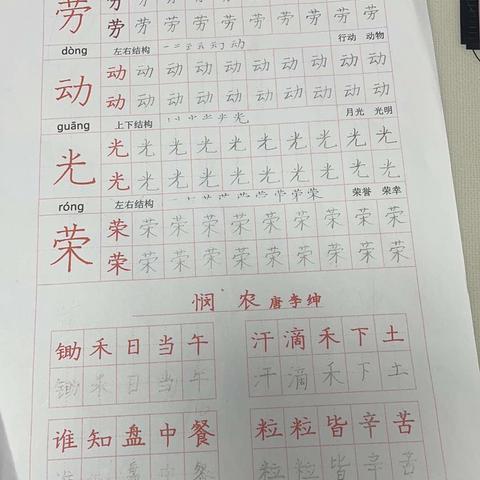 劳 劳 劳 劳 劳 劳 劳 劳 劳 劳
劳 劳 劳 劳 劳 劳 劳 劳 劳
dòng 左右结构 行动 动物
动 动 动 动 动 动 动 动 动 动
动 动 动 动 动 动 动 动 动
guāng 上下结构 月光 光明
光 光 光 光 光 光 光 光 光 光
光 光 光 光 光 光 光 光 光
róng 左右结构 荣誉 荣幸
荣 荣 荣 荣 荣 荣 荣 荣 荣 荣
荣 荣 荣 荣 荣 荣 荣 荣 荣
悯 农 唐 李绅
锄 禾 日 当 午 汗 滴 禾 下 土
锄 禾 日 当 午 汗 滴 禾 下 土
谁 知 盘 中 餐 粒 粒 皆 辛 苦
谁 知 盘 中 餐 粒 粒 皆 辛 苦